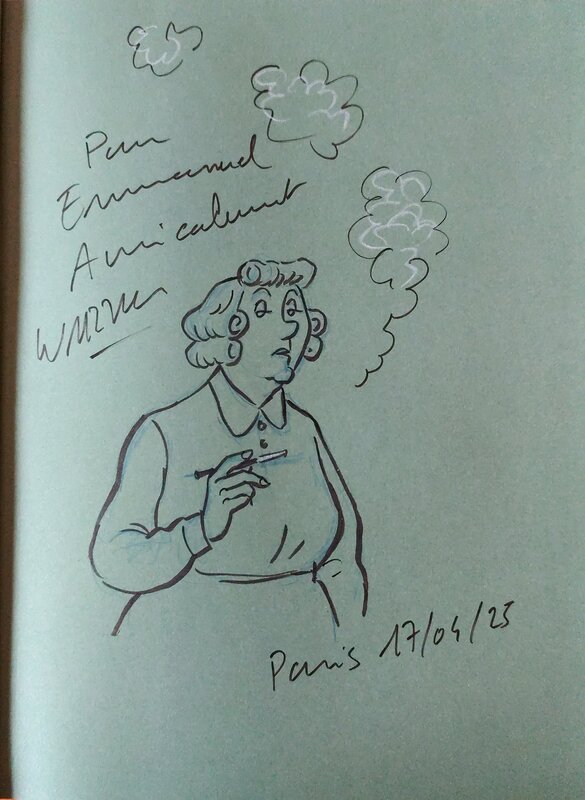 Pour
Emmanuel
Amicalement
Paris 17/04/25